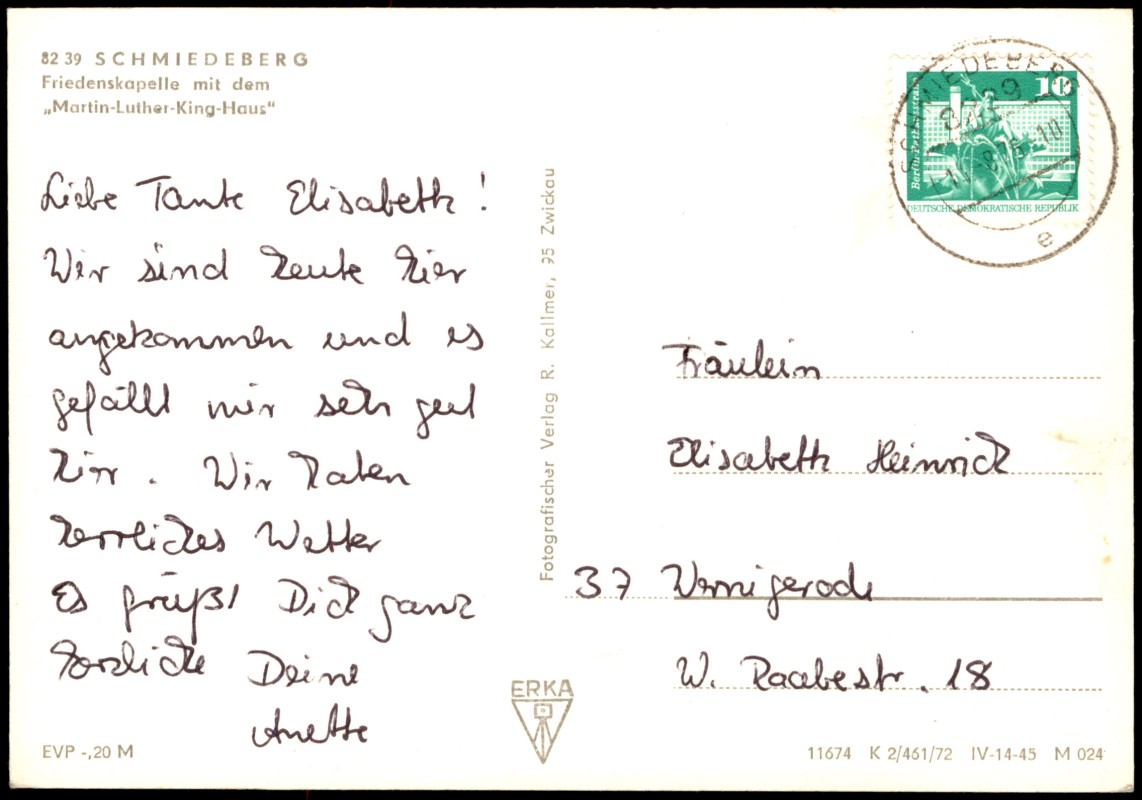 82 39 SCHMIEDEBERG
Friedenskapelle mit dem
„Martin-Luther-King-Haus“
Liebe Tante Elisabeth!
Wir sind heute hier
angekommen und es
gefällt mir sehr gut
hier. Wir haben
herrliches Wetter
Es grüßt Dich ganz
herzlich Deine
Anette
EVP -,20 M
Fotografischer Verlag R. Kallmer, 95 Zwickau
ERKA
SCHMIEDEBERG
8239
e
10
Berlin-Rathausstraße
DEUTSCHE DEMOKRATISCHE REPUBLIK
Fräulein
Elisabeth Heinrich
37 Wernigerode
W. Raabestr. 18
11674 K 2/461/72 IV-14-45 M 024